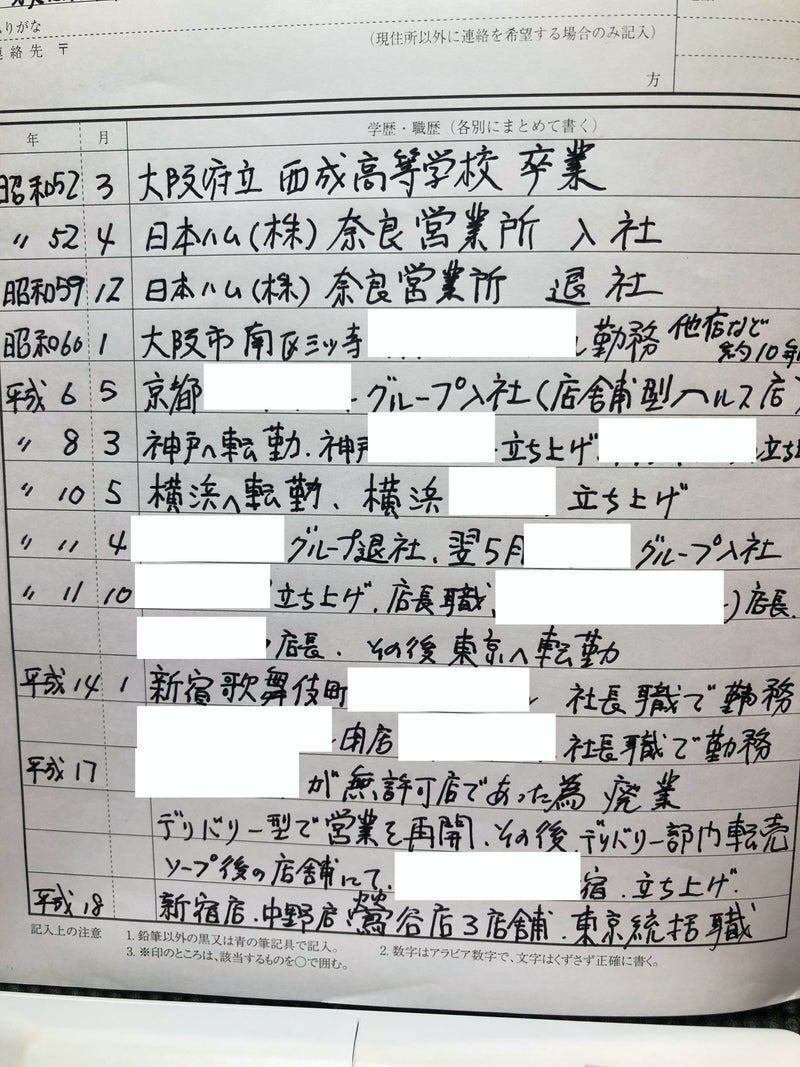 りがな
連絡先 〒
(現住所以外に連絡を希望する場合のみ記入)
方
年 月 学歴・職歴(各別にまとめて書く)
昭和52 3 大阪府立 西成高等学校 卒業
〃 52 4 日本ハム(株) 奈良営業所 入社
昭和59 12 日本ハム(株) 奈良営業所 退社
昭和60 1 大阪市南区三ッ寺 勤務 他店など
約10年
平成 6 5 京都 グループ入社(店舗型ヘルス店)
〃 8 3 神戸へ転勤.神戸 立ち上げ 立ち
〃 10 5 横浜へ転勤、横浜 立ち上げ
〃 11 4 グループ退社、翌5月 グループ入社
〃 11 10 立ち上げ.店長職、 )店長.
店長. その後 東京へ転勤
平成14 1 新宿歌舞伎町 社長職で勤務
閉店 社長職で勤務
平成17 が無許可店であった為 廃業
デリバリー型で営業を再開.その後.デリバリー部門転売
ソープ後の店舗にて、 宿.立ち上げ.
平成18 新宿店.中野店.鶯谷店3店舗.東京統括職
記入上の注意 1. 鉛筆以外の黒又は青の筆記具で記入。 2. 数字はアラビア数字で、文字はくずさず正確に書く。
3. ※印のところは、該当するものを〇で囲む。